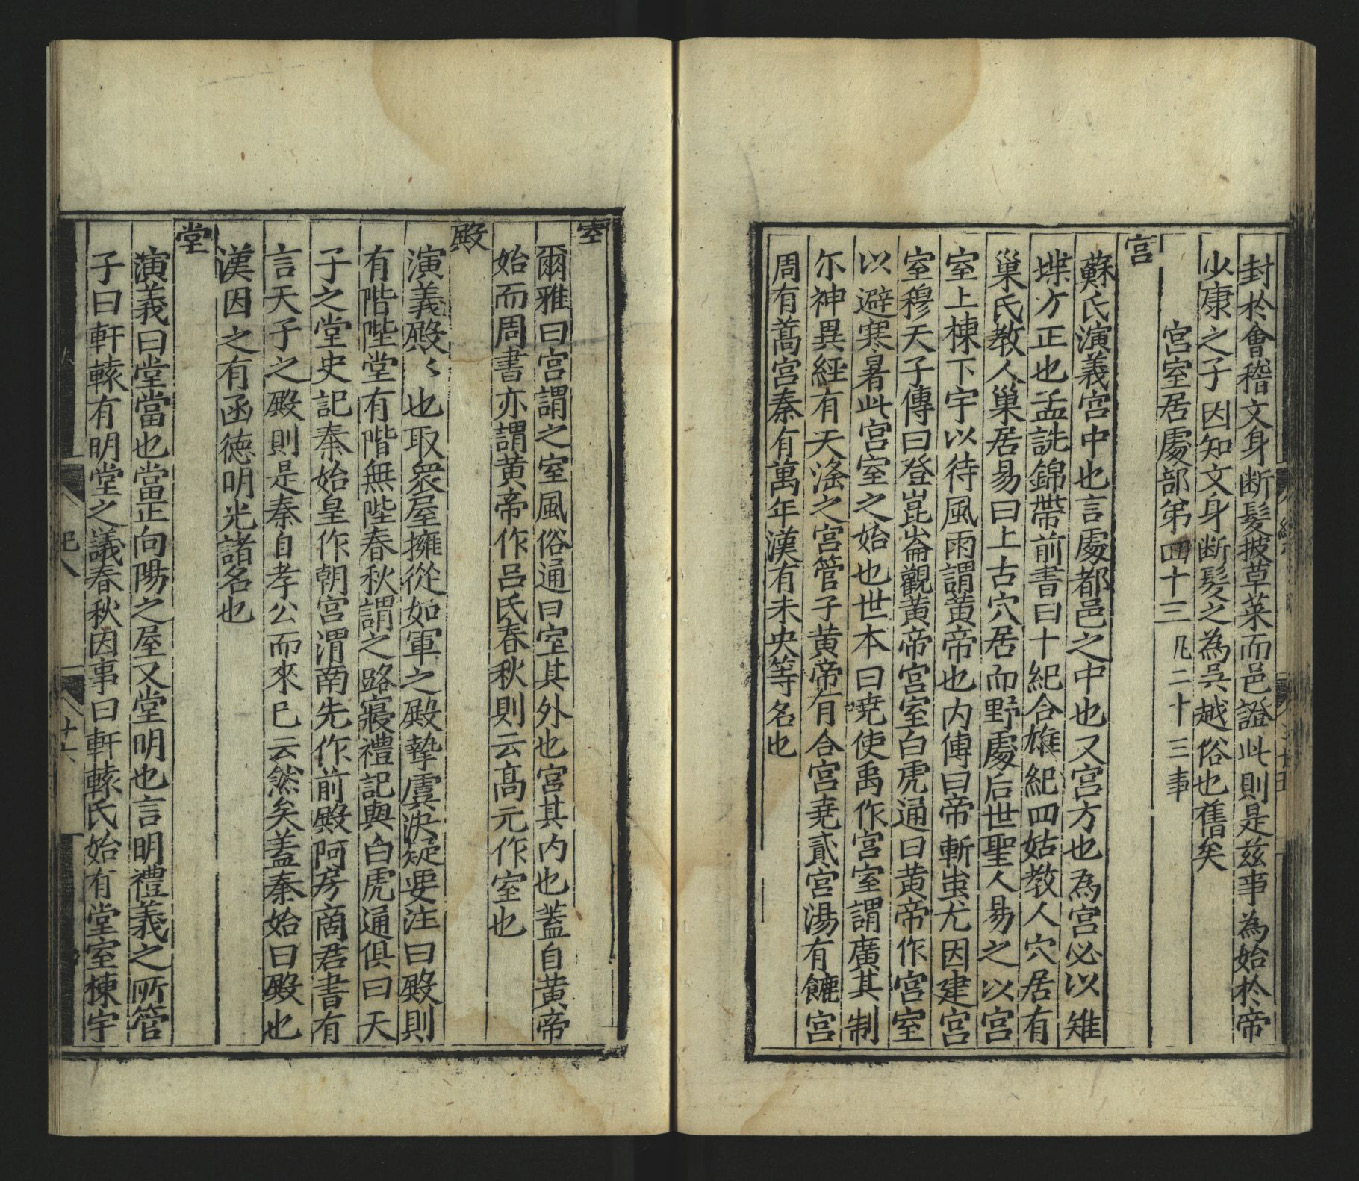 封於會稽文身断髮披草萊而邑證此則是兹事為始於帝
少康之子因知文身断髪之為吳越俗也舊矣
宮室居處部第四十三 凡二十三事
宮
蘇氏演義宮中也言處都邑之中也又宮方也為宮必以雉
堞方正也孟詵錦帶前書曰十紀合雒紀四姑教人穴居有
巢氏教人巢居易曰上古穴居而野處后世聖人易之以宮
室上棟下宇以待風雨謂黄帝也内傳曰帝斬蚩尤因建宮
室穆天子傳曰登崑崙觀黄帝宮室白虎通曰黄帝作宮室
以避寒暑此宮室之始也世本曰堯使禹作宮室謂廣其制
尓神異經有天滛之宮管子黄帝有合宮堯貳宮湯有鑣宮
周有蒿宮秦有萬年漢有未央等名也
室
爾雅曰宮謂之室風俗通曰室其外也宮其内也蓋自黄帝
始而周書亦謂黄帝作吕氏春秋則云高元作室也
殿
演義殿〻也取衆屋擁從如軍之殿摯虞决疑要注曰殿則
有階陛堂有階無陛春秋謂之路寢禮記與白虎通俱曰天
子之堂史記秦始皇作朝宮渭南先作前殿阿房商君書有
言天子之殿則是秦自孝公而來已云然矣蓋秦始曰殿也
漢因之有函德明光諸名也
堂
演義曰堂當也當正向陽之屋又堂明也言明禮義之所管
子曰軒轅有明堂之議春秋因事曰軒轅氏始有堂室棟宇
紀八
廿六